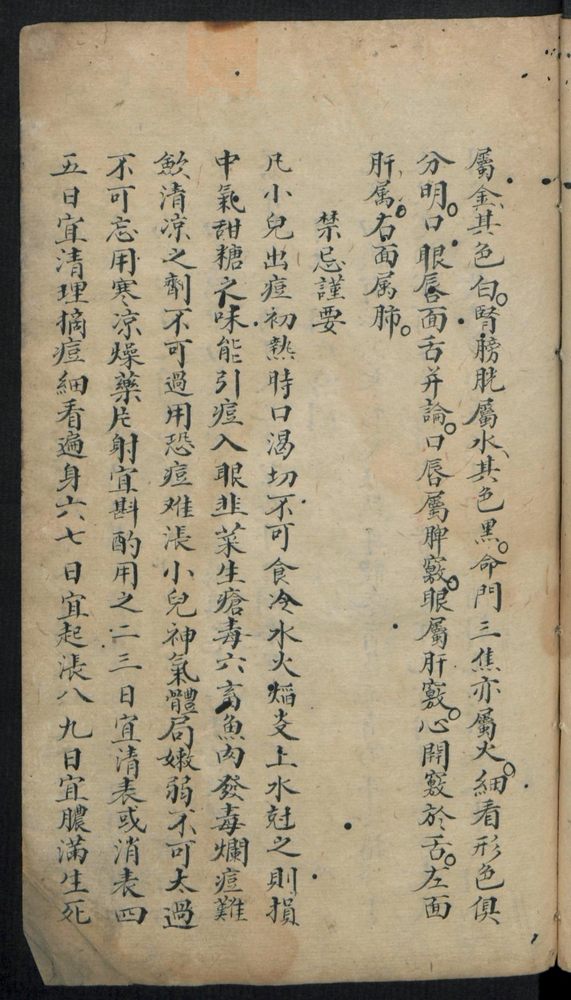 屬金其色白。腎膀胱屬水、其色黑。命門三焦亦屬火。細看形色俱
分明。口眼唇面舌并論。口唇屬脾竅。眼屬肝竅。心開竅於舌。左面
肝属。右面属肺。
禁忌謹要
凡小兒出痘初熱時口渴切不可食冷水火焰支上水尅之則損
中氣甜糖之味能引痘入眼韭菜生瘡毒六畜魚肉發毒爛痘難
飲清凉之劑不可過用恐痘难漲小兒神氣體局嫩弱不可太過
不可忘用寒凉燥藥片射宜斟酌用之二三日宜清表或消表四
五日宜清理摘痘細看遍身六七日宜起漲八九日宜膿滿生死